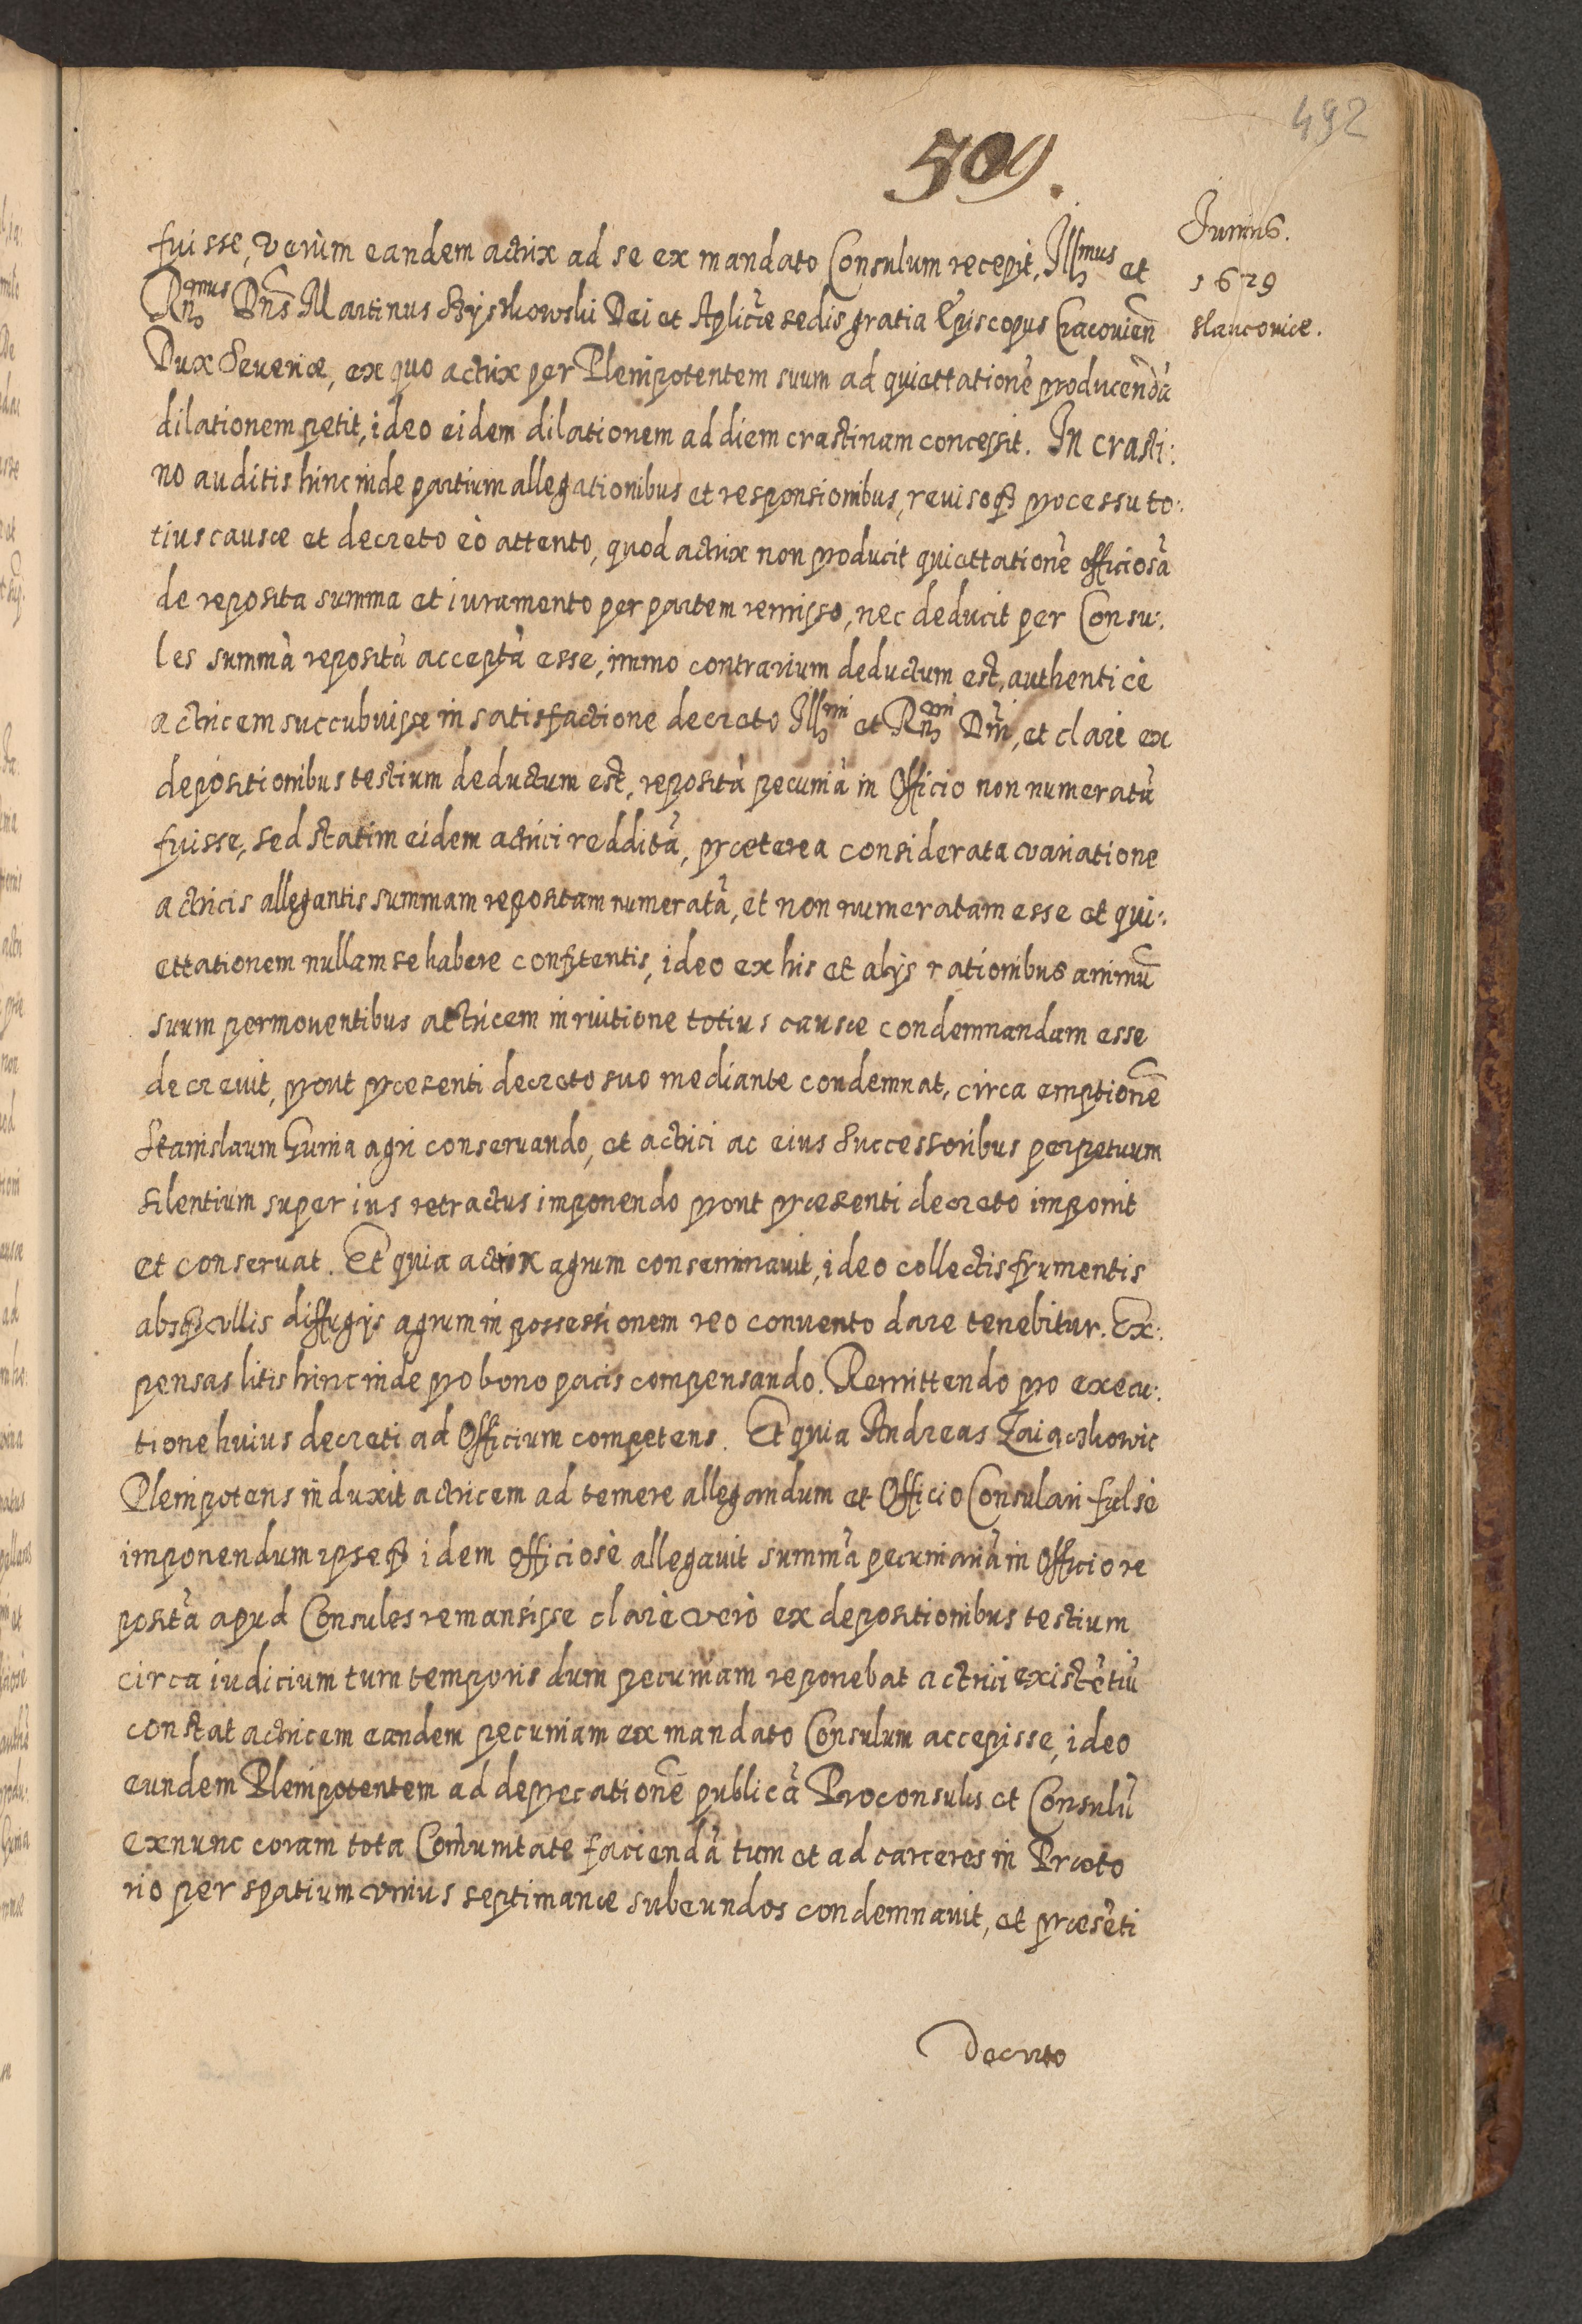 492
509.
Junius.
1629
Slaucoviæ.
fuisse, verùm eandem actrix ad se ex mandato Consulum recepit, Illmus et
Rndmus Dns Martinus Szyszkowski Dei et Aplicæ sedis gratia Episcopus Cracouien
Dux Seueriæ, ex quo actrix per Plenipotentem suum ad quiettationē producendā
dilationem petit, ideo eidem dilationem ad diem crastinam concessit. In crasti:
no auditis hinc inde partium allegationibus et responsionibus, revisoq3 processu to:
tius causæ et decreto eò attento, quod actrix non producit quiettationē officiosā
de reposita summa et iuramento per partem remisso, nec deducit per Consu:
les summā repositā acceptā esse, immo contrarium deductum est, authenticè
actricem succubuisse in satisfactione decreto Illmi et Rndmi Dni, et clarè ex
depositionibus testium deductum est, repositā pecuniā in Officio non numeratā
fuisse, sed statim eidem actrici redditā, præterea considerata variatione
actricis allegantis summam repositam numeratā, et non numeratam esse et qui:
ettationem nullam se habere confitentis, ideo ex his et alijs rationibus animū
suum permouentibus actricem in ruitione totius causæ condemnandam esse
decrevit, prout præsenti decreto suo mediante condemnat, circa emptionē
Stanislaum Guria agri conseruando, et actrici ac eius Successoribus perpetuum
silentium super ius retractus imponendo prout præsenti decreto imponit
et conseruat. Et quia actrix agrum conseminavit, ideo collectis frumentis
absq3 vllis diffugijs agrum in possessionem reo convento dare tenebitur. Ex:
pensas litis hinc inde pro bono pacis compensando. Remittendo pro execu:
tione huius decreti ad Officium competens. Et quia Andreas Zaiączkowic
Plenipotens induxit actricem ad temere allegandum et Officio Consulari falsè
imponendum ipseq3 idem officiosè allegavit summā pecuniariā in Officio re
positā apud Consules remansisse clarè verò ex depositionibus testium
circa iudicium tum temporis dum pecuniam reponebat actrici existētiū
constat actricem eandem pecuniam ex mandato Consulum accepisse, ideo
eundem Plenipotentem ad deprecationē publicā Proconsulis et Consulū
exnunc coram tota Comunitate faciendā tum et ad carceres in Præto
rio per spatium vnius septimanæ subeundos condemnavit, et præsēti
Decreto